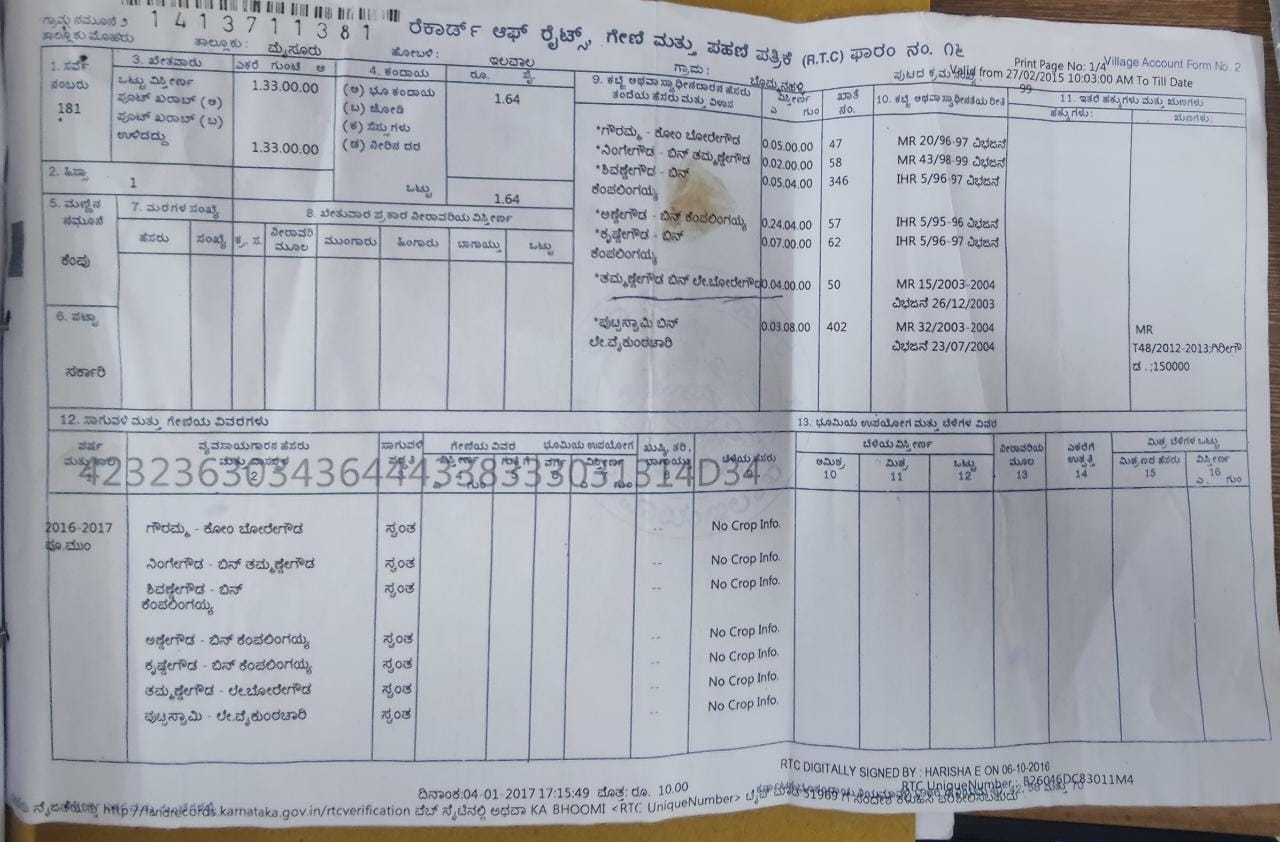 ಗ್ರಾಮ ನಮೂನೆ ೨ 1 4 1 3 7 1 1 3 8 1 ರೆಕಾರ್ಡ್ ಆಫ್ ರೈಟ್ಸ್, ಗೇಣಿ ಮತ್ತು ಪಹಣಿ ಪತ್ರಿಕೆ (R.T.C) ಫಾರಂ ನಂ. ೧೬ Print Page No: 1/4 Village Account Form No. 2
ತಾಲ್ಲೂಕು : ಮೈಸೂರು ಹೋಬಳಿ : ಇಲವಾಲ ಗ್ರಾಮ : Valid from 27/02/2015 10:03:00 AM To Till Date
99
1. ಸರ್ವೆ ನಂಬರು
181
2. ಹಿಸ್ಸಾ 1
3. ಖೇತವಾರು ಎಕರೆ ಗುಂಟೆ ಆ
ಒಟ್ಟು ವಿಸ್ತೀರ್ಣ 1.33.00.00
ಪೂಟ್ ಖರಾಬ್ (ಅ)
ಪೂಟ್ ಖರಾಬ್ (ಬ)
ಉಳಿದದ್ದು 1.33.00.00
4. ಕಂದಾಯ ರೂ. ಪೈ.
(ಅ) ಭೂ ಕಂದಾಯ 1.64
(ಬ) ಜೋಡಿ
(ಕ) ಸೆಸ್ಸುಗಳು
(ಡ) ನೀರಿನ ದರ
ಒಟ್ಟು 1.64
5. ಮಣ್ಣಿನ ನಮೂನೆ
ಕೆಂಪು
6. ಪಟ್ಟಾ
ಸರ್ಕಾರಿ
7. ಮರಗಳ ಸಂಖ್ಯೆ
ಹೆಸರು ಸಂಖ್ಯೆ
8. ಖೇತುವಾರ ಪ್ರಕಾರ ನೀರಾವರಿಯ ವಿಸ್ತೀರ್ಣ
ಕ್ರ. ಸ. ನೀರಾವರಿ ಮೂಲ ಮುಂಗಾರು ಹಿಂಗಾರು ಬಾಗಾಯ್ತು ಒಟ್ಟು
9. ಕಬ್ಜೆ ಅಥವಾ ಸ್ವಾಧೀನದಾರನ ಹೆಸರು ವಿಸ್ತೀರ್ಣ ಖಾತೆ 10. ಕಬ್ಜೆ ಅಥವಾ ಸ್ವಾಧೀನತೆಯ ರೀತಿ 11. ಇತರೆ ಹಕ್ಕುಗಳು ಮತ್ತು ಋಣಗಳು
ತಂದೆಯ ಹೆಸರು ಮತ್ತು ವಿಳಾಸ ಎ ಗುಂ ನಂ. ಹಕ್ಕುಗಳು: ಋಣಗಳು:
*ಗೌರಮ್ಮ - ಕೋಂ ಬೋರೇಗೌಡ 0.05.00.00 47 MR 20/96-97 ವಿಭಜನೆ
*ನಿಂಗೇಗೌಡ - ಬಿನ್ ತಮ್ಮಣ್ಣೇಗೌಡ 0.02.00.00 58 MR 43/98-99 ವಿಭಜನೆ
*ಶಿವಣ್ಣೇಗೌಡ - ಬಿನ್ 0.05.04.00 346 IHR 5/96-97 ವಿಭಜನೆ
ಕೆಂಪಲಿಂಗಯ್ಯ
*ಅಣ್ಣೇಗೌಡ - ಬಿನ್ ಕೆಂಪಲಿಂಗಯ್ಯ 0.24.04.00 57 IHR 5/95-96 ವಿಭಜನೆ
*ಕೃಷ್ಣೇಗೌಡ - ಬಿನ್ 0.07.00.00 62 IHR 5/96-97 ವಿಭಜನೆ
ಕೆಂಪಲಿಂಗಯ್ಯ
*ತಮ್ಮಣ್ಣೇಗೌಡ ಬಿನ್ ಲೇ.ಬೋರೇಗೌಡ 0.04.00.00 50 MR 15/2003-2004
ವಿಭಜನೆ 26/12/2003
*ಪುಟ್ಟಸ್ವಾಮಿ ಬಿನ್ 0.03.08.00 402 MR 32/2003-2004 MR
ಲೇ.ವೈಕುಂಠಚಾರಿ ವಿಭಜನೆ 23/07/2004 T48/2012-2013;ಗಿರೀಗೌ
ಡ . ;150000
12. ಸಾಗುವಳಿ ಮತ್ತು ಗೇಣಿಯ ವಿವರಗಳು 13. ಭೂಮಿಯ ಉಪಯೋಗ ಮತ್ತು ಬೆಳೆಗಳ ವಿವರ
ವ್ಯವಸಾಯಗಾರನ ಹೆಸರು ಸಾಗುವಳಿ ಗೇಣಿಯ ವಿವರ ಭೂಮಿಯ ಉಪಯೋಗ ಖುಷ್ಕಿ, ತರಿ, ಬೆಳೆಯ ಹೆಸರು ಬೆಳೆಯ ವಿಸ್ತೀರ್ಣ ನೀರಾವರಿಯ ಮೂಲ ಎಕರೆಗೆ ಉತ್ಪತ್ತಿ ಮಿಶ್ರ ಬೆಳೆಗಳ ಒಟ್ಟು
ಅಮಿಶ್ರ ಮಿಶ್ರ ಒಟ್ಟು ಮಿಶ್ರಣದ ಹೆಸರು ವಿಸ್ತೀರ್ಣ
10 11 12 13 14 15 16
ಎ. ಗುಂ
2016-2017 ಗೌರಮ್ಮ - ಕೋಂ ಬೋರೇಗೌಡ ಸ್ವಂತ -- No Crop Info.
ಪೂ.ಮುಂ
ನಿಂಗೇಗೌಡ - ಬಿನ್ ತಮ್ಮಣ್ಣೇಗೌಡ ಸ್ವಂತ -- No Crop Info.
ಶಿವಣ್ಣೇಗೌಡ - ಬಿನ್ ಸ್ವಂತ -- No Crop Info.
ಕೆಂಪಲಿಂಗಯ್ಯ
ಅಣ್ಣೇಗೌಡ - ಬಿನ್ ಕೆಂಪಲಿಂಗಯ್ಯ ಸ್ವಂತ -- No Crop Info.
ಕೃಷ್ಣೇಗೌಡ - ಬಿನ್ ಕೆಂಪಲಿಂಗಯ್ಯ ಸ್ವಂತ -- No Crop Info.
ತಮ್ಮಣ್ಣೇಗೌಡ - ಲೇ.ಬೋರೇಗೌಡ ಸ್ವಂತ -- No Crop Info.
ಪುಟ್ಟಸ್ವಾಮಿ - ಲೇ.ವೈಕುಂಠಚಾರಿ ಸ್ವಂತ -- No Crop Info.
RTC DIGITALLY SIGNED BY : HARISHA E ON 06-10-2016
ದಿನಾಂಕ:04-01-2017 17:15:49 ಮೊತ್ತ: ರೂ. 10.00 RTC UniqueNumber : B26046DC83011M4
http://landrecords.karnataka.gov.in/rtcverification ವೆಬ್ ಸೈಟಿನಲ್ಲಿ ಅಥವಾ KA BHOOMI <RTC UniqueNumber> ಟೈಪ್ ಮಾಡಿ 51969